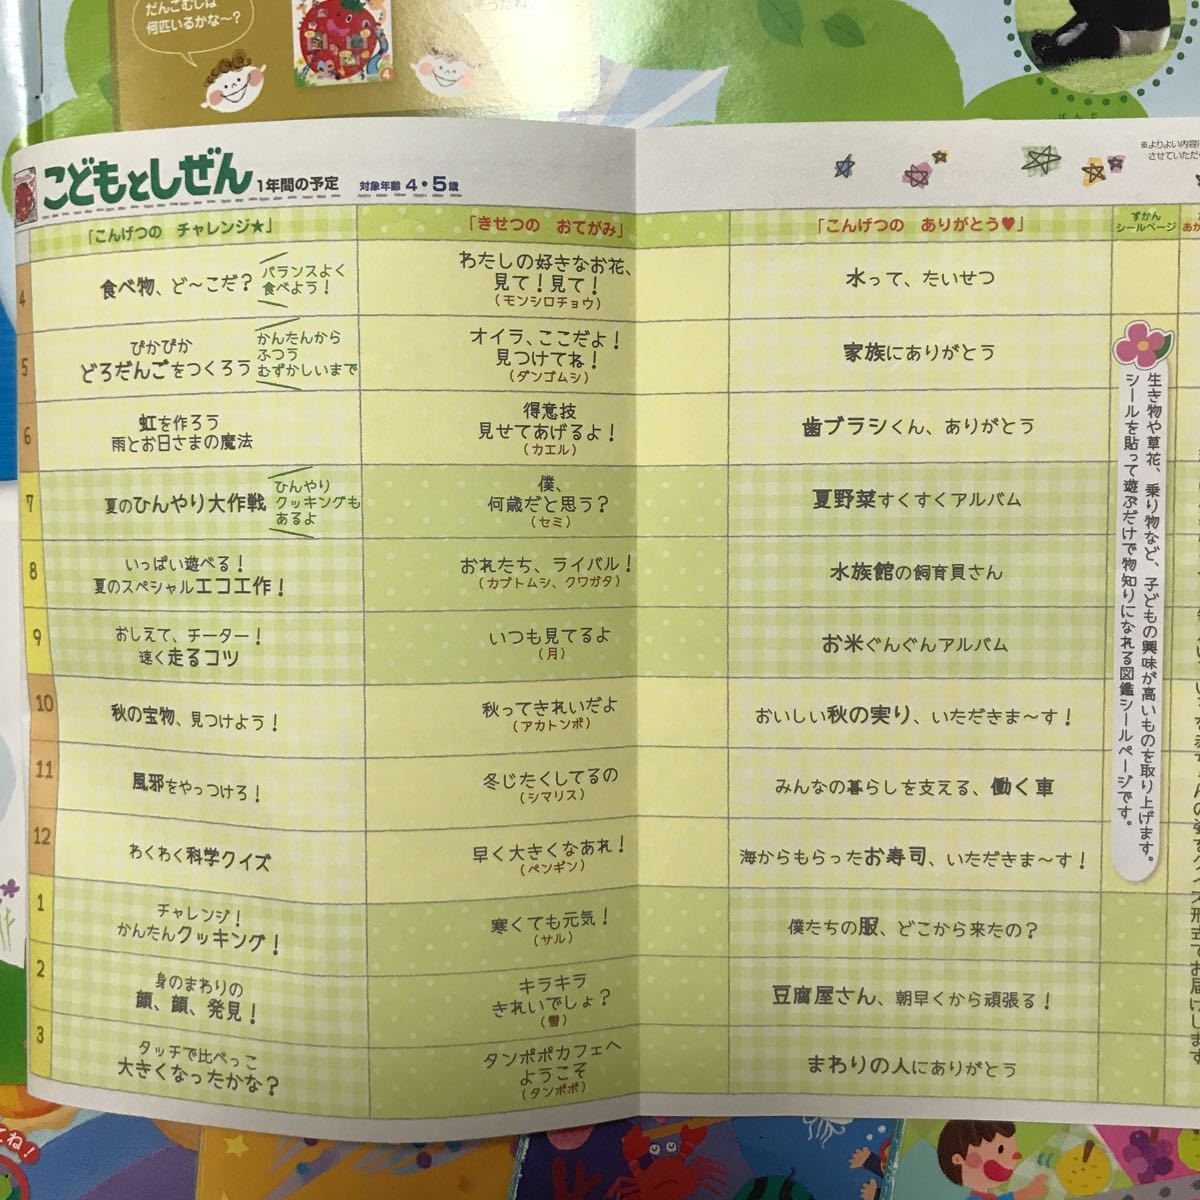 だんごむしは
何匹いるかな～?
こどもとしぜん 1年間の予定 対象年齢 4・5歳
※よりよい内容に
させていただく
「こんげつの チャレンジ★」
「きせつの おてがみ」
「こんげつの ありがとう♥」
ずかん
シールページ
4
食べ物、ど～こだ?
バランスよく
食べよう!
わたしの好きなお花、
見て!見て!
(モンシロチョウ)
水って、たいせつ
5
ぴかぴか
どろだんごをつくろう
かんたんから
ふつう
むずかしいまで
オイラ、ここだよ!
見つけてね!
(ダンゴムシ)
家族にありがとう
6
虹を作ろう
雨とお日さまの魔法
得意技
見せてあげるよ!
(カエル)
歯ブラシくん、ありがとう
7
夏のひんやり大作戦
ひんやり
クッキングも
あるよ
僕、
何歳だと思う?
(セミ)
夏野菜すくすくアルバム
8
いっぱい遊べる!
夏のスペシャルエコ工作!
おれたち、ライバル!
(カブトムシ、クワガタ)
水族館の飼育員さん
9
おしえて、チーター!
速く走るコツ
いつも見てるよ
(月)
お米ぐんぐんアルバム
10
秋の宝物、見つけよう!
秋ってきれいだよ
(アカトンボ)
おいしい秋の実り、いただきま～す!
11
風邪をやっつけろ!
冬じたくしてるの
(シマリス)
みんなの暮らしを支える、働く車
12
わくわく科学クイズ
早く大きくなあれ!
(ペンギン)
海からもらったお寿司、いただきま～す!
1
チャレンジ!
かんたんクッキング!
寒くても元気!
(サル)
僕たちの服、どこから来たの?
2
身のまわりの
顔、顔、発見!
キラキラ
きれいでしょ?
(雪)
豆腐屋さん、朝早くから頑張る!
3
タッチで比べっこ
大きくなったかな?
タンポポカフェへ
ようこそ
(タンポポ)
まわりの人にありがとう
生き物や草花、乗り物など、子どもの興味が高いものを取り上げます。
シールを貼って遊ぶだけで物知りになれる図鑑シールページです。